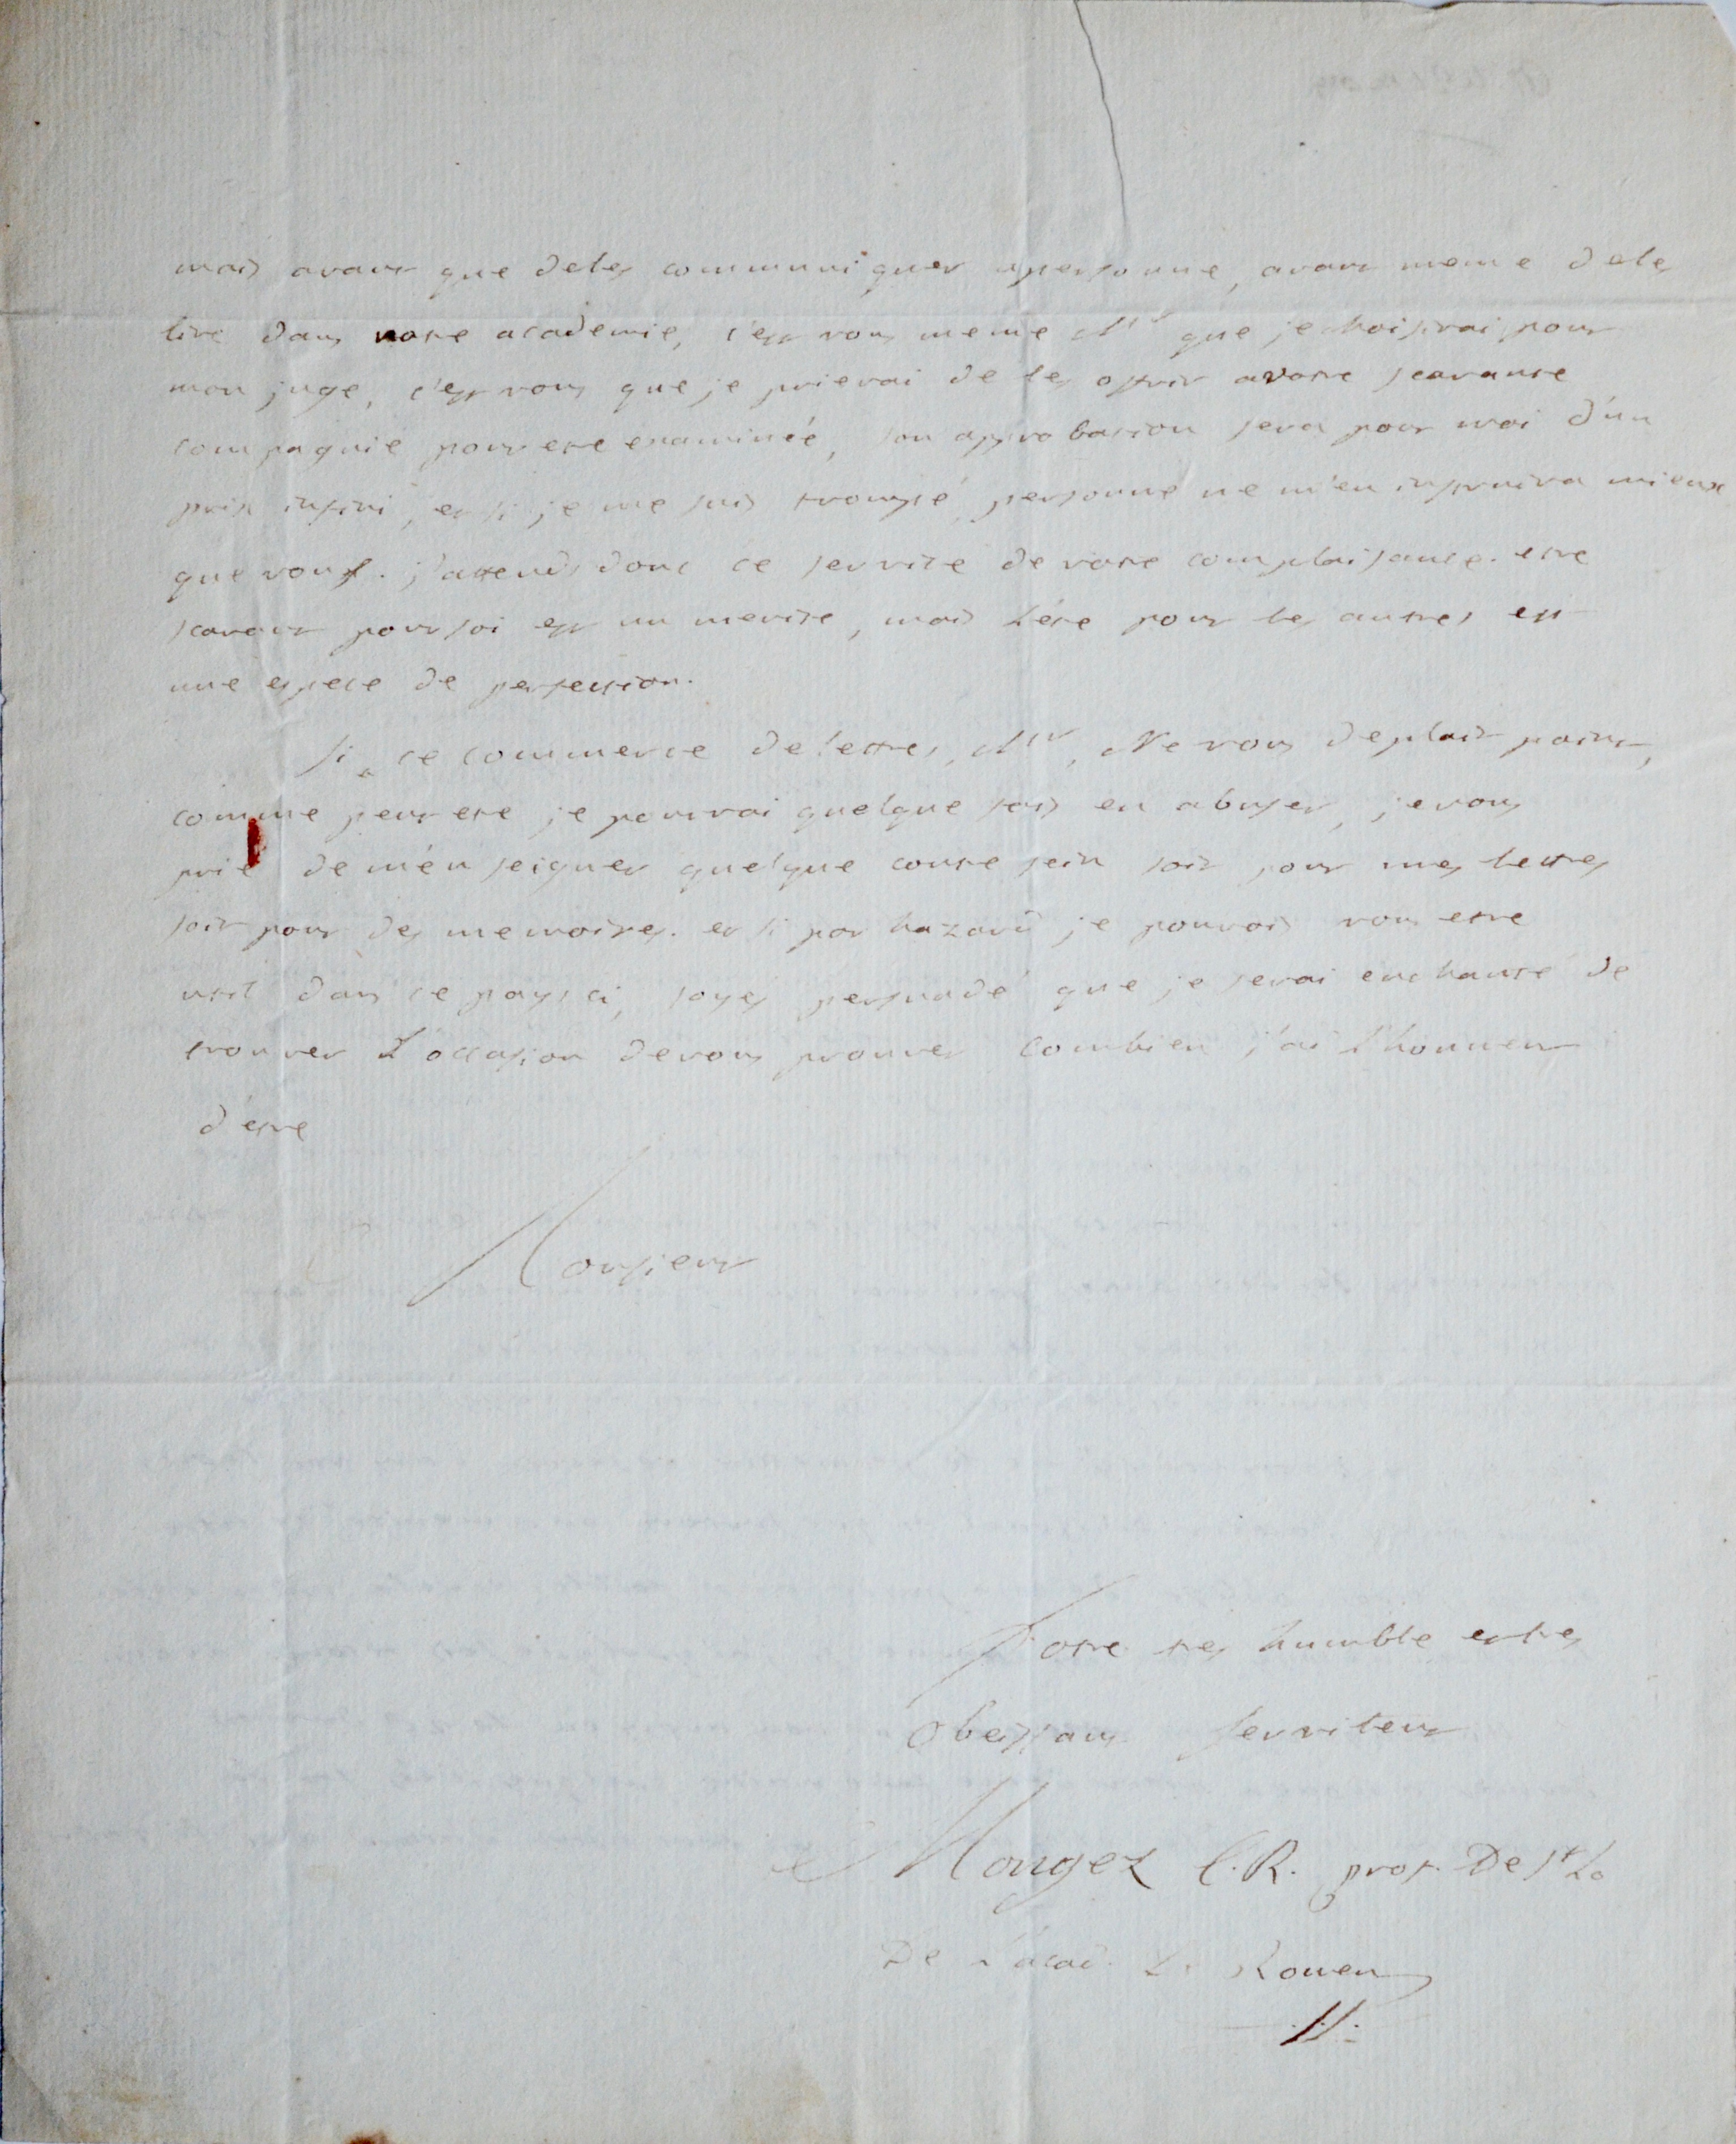 mais avant que de les communiquer a personne, avant meme de les
lire dans notre academie, c'est vous meme Mr que je choisirai pour
mon juge, c'est vous que je prierai de les offrir a votre scavante
compagnie pour etre examinée, son approbation sera pour moi d'un
prix infini, et si je me suis trompé, personne ne m'en instruira mieux
que vous. j'attends donc ce service de votre complaisance. etre
scavant pour soi est un merite, mais l'être pour les autres est
une espece de perfection.
Si ce commerce de lettres, Mr, Ne vous deplait point,
comme peut etre je pourrai quelque fois en abuser, je vous
prie de m'en seigner quelque contre sein soit pour mes lettres
soit pour des memoires. et si par hazard je pouvois vous etre
util dans ce pays ci, soyes persuadé que je serai enchanté de
trouver L'occasion de vous prouver combien j'ai L'honneur
d'etre
Monsieur
Votre tres humble et tres
Obeissant serviteur
Mongez C.R. prof. De St Lo
De L'acad. De Rouen